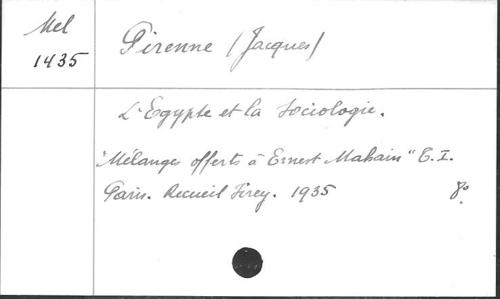 Mel
1435
Pirenne (Jacques)
L'Egypte et la Sociologie.
"Mélanges offerts à Ernest Mahaim" T. I.
Paris. Recueil Sirey. 1935 8°